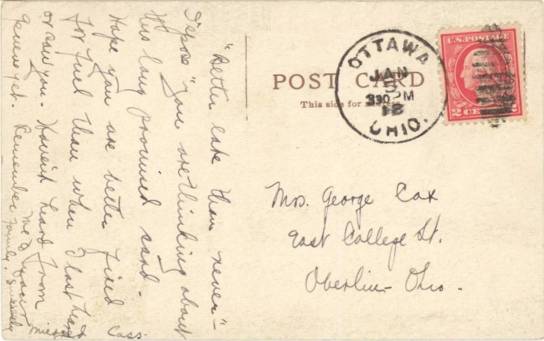 "Better late than never" -
I s'pose you are thinking about
this long promised card.
Hope you are better fixed
for fuel than when I last heard
or saw you. Haven't heard from
Geneva yet. Remember me to your
family. Sincerely
Cass.
POST CARD
This side for
OTTAWA
JAN
5
330 PM
18
OHIO.
U.S. POSTAGE
2 CENTS 2
Mrs. George Cox
East College St.
Oberlin - Ohio.